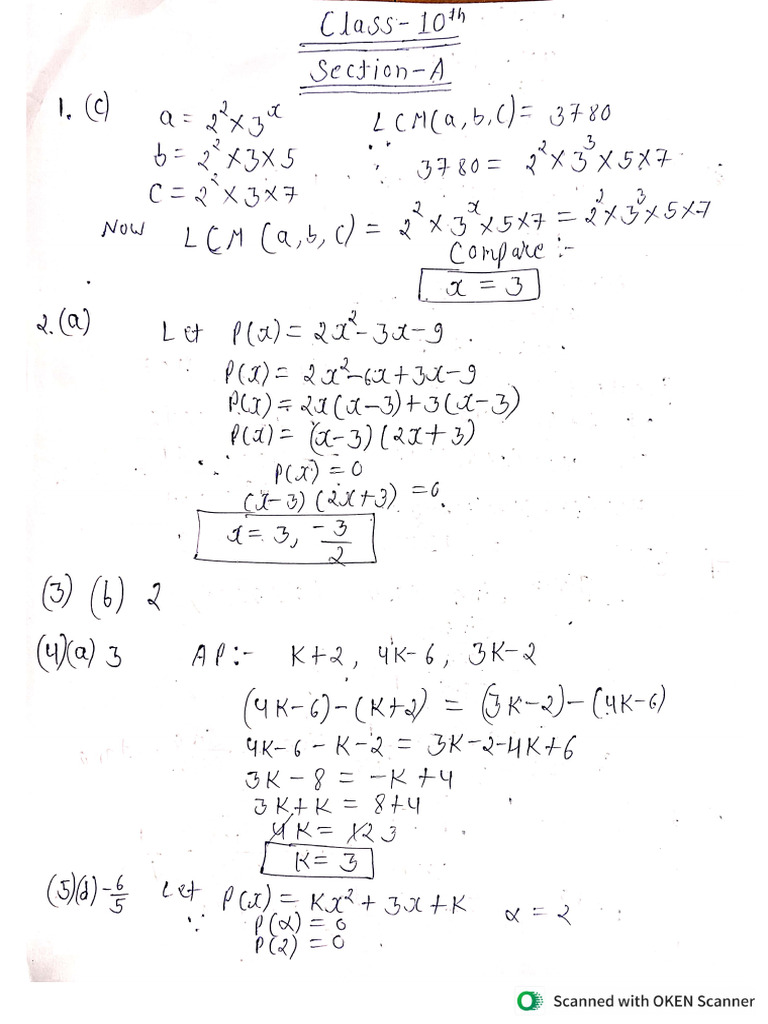 Class-10th
Section-A
1. (c) a = 2² × 3ˣ LCM(a,b,c) = 3780
b = 2² × 3 × 5 ∵ 3780 = 2² × 3³ × 5 × 7
c = 2² × 3 × 7
Now LCM (a,b,c) = 2² × 3ˣ × 5 × 7 = 2² × 3³ × 5 × 7
Compare :-
x = 3
2. (a) Let P(x) = 2x² - 3x - 9
P(x) = 2x² - 6x + 3x - 9
P(x) = 2x(x-3) + 3(x-3)
P(x) = (x-3) (2x+3)
∵ P(x) = 0
(x-3) (2x+3) = 0
x = 3, -3/2
(3) (b) 2
(4) (a) 3 AP:- K+2, 4K-6, 3K-2
(4K-6) - (K+2) = (3K-2) - (4K-6)
4K-6-K-2 = 3K-2-4K+6
3K-8 = -K+4
3K+K = 8+4
4K = 12 3
K = 3
(5) (d) -6/5 Let P(x) = Kx² + 3x + K α = 2
∵ P(α) = 0
P(2) = 0
Scanned with OKEN Scanner